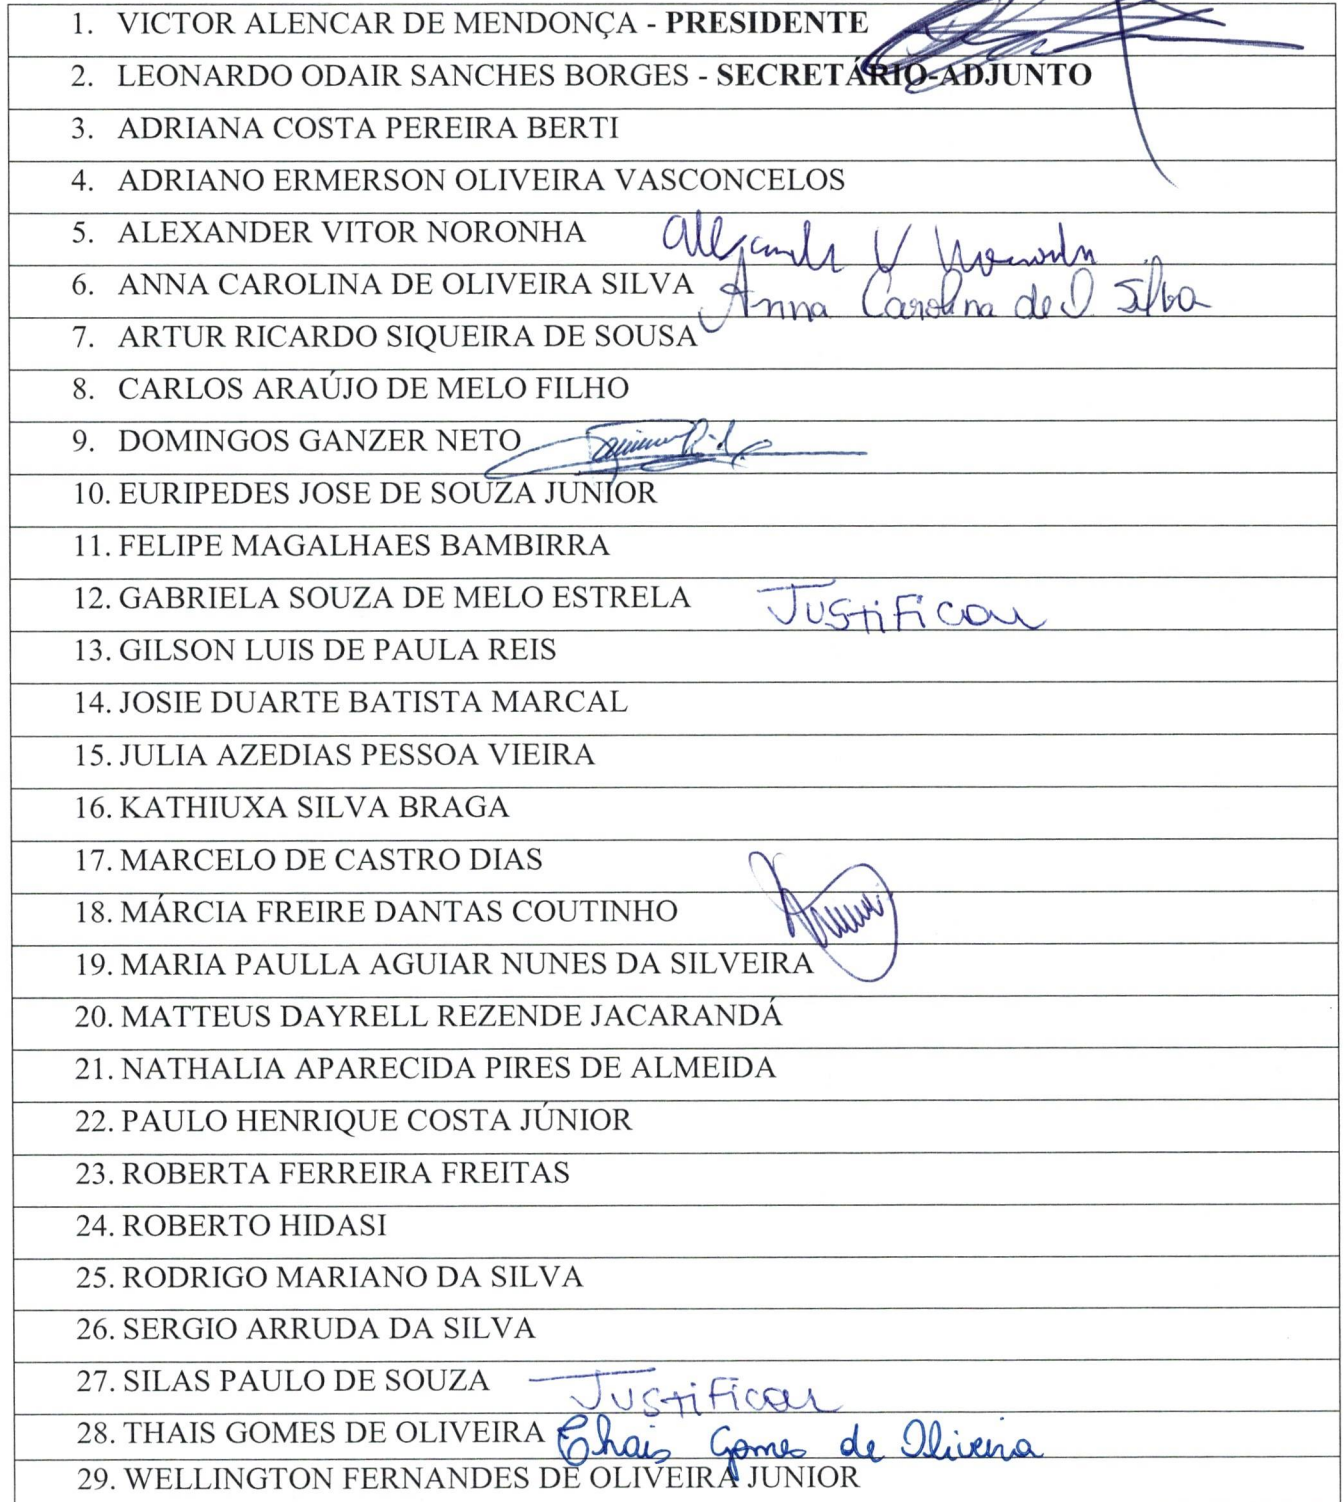 1. VICTOR ALENCAR DE MENDONÇA - PRESIDENTE
2. LEONARDO ODAIR SANCHES BORGES - SECRETÁRIO-ADJUNTO
3. ADRIANA COSTA PEREIRA BERTI
4. ADRIANO ERMERSON OLIVEIRA VASCONCELOS
5. ALEXANDER VITOR NORONHA
6. ANNA CAROLINA DE OLIVEIRA SILVA Anna Carolina de O Silva
7. ARTUR RICARDO SIQUEIRA DE SOUSA
8. CARLOS ARAÚJO DE MELO FILHO
9. DOMINGOS GANZER NETO
10. EURIPEDES JOSE DE SOUZA JUNIOR
11. FELIPE MAGALHAES BAMBIRRA
12. GABRIELA SOUZA DE MELO ESTRELA Justificou
13. GILSON LUIS DE PAULA REIS
14. JOSIE DUARTE BATISTA MARCAL
15. JULIA AZEDIAS PESSOA VIEIRA
16. KATHIUXA SILVA BRAGA
17. MARCELO DE CASTRO DIAS
18. MÁRCIA FREIRE DANTAS COUTINHO
19. MARIA PAULLA AGUIAR NUNES DA SILVEIRA
20. MATTEUS DAYRELL REZENDE JACARANDÁ
21. NATHALIA APARECIDA PIRES DE ALMEIDA
22. PAULO HENRIQUE COSTA JÚNIOR
23. ROBERTA FERREIRA FREITAS
24. ROBERTO HIDASI
25. RODRIGO MARIANO DA SILVA
26. SERGIO ARRUDA DA SILVA
27. SILAS PAULO DE SOUZA Justificou
28. THAIS GOMES DE OLIVEIRA Thais Gomes de Oliveira
29. WELLINGTON FERNANDES DE OLIVEIRA JUNIOR